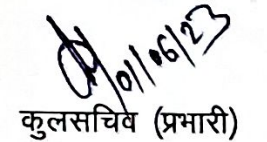 01/06/23
कुलसचिव (प्रभारी)